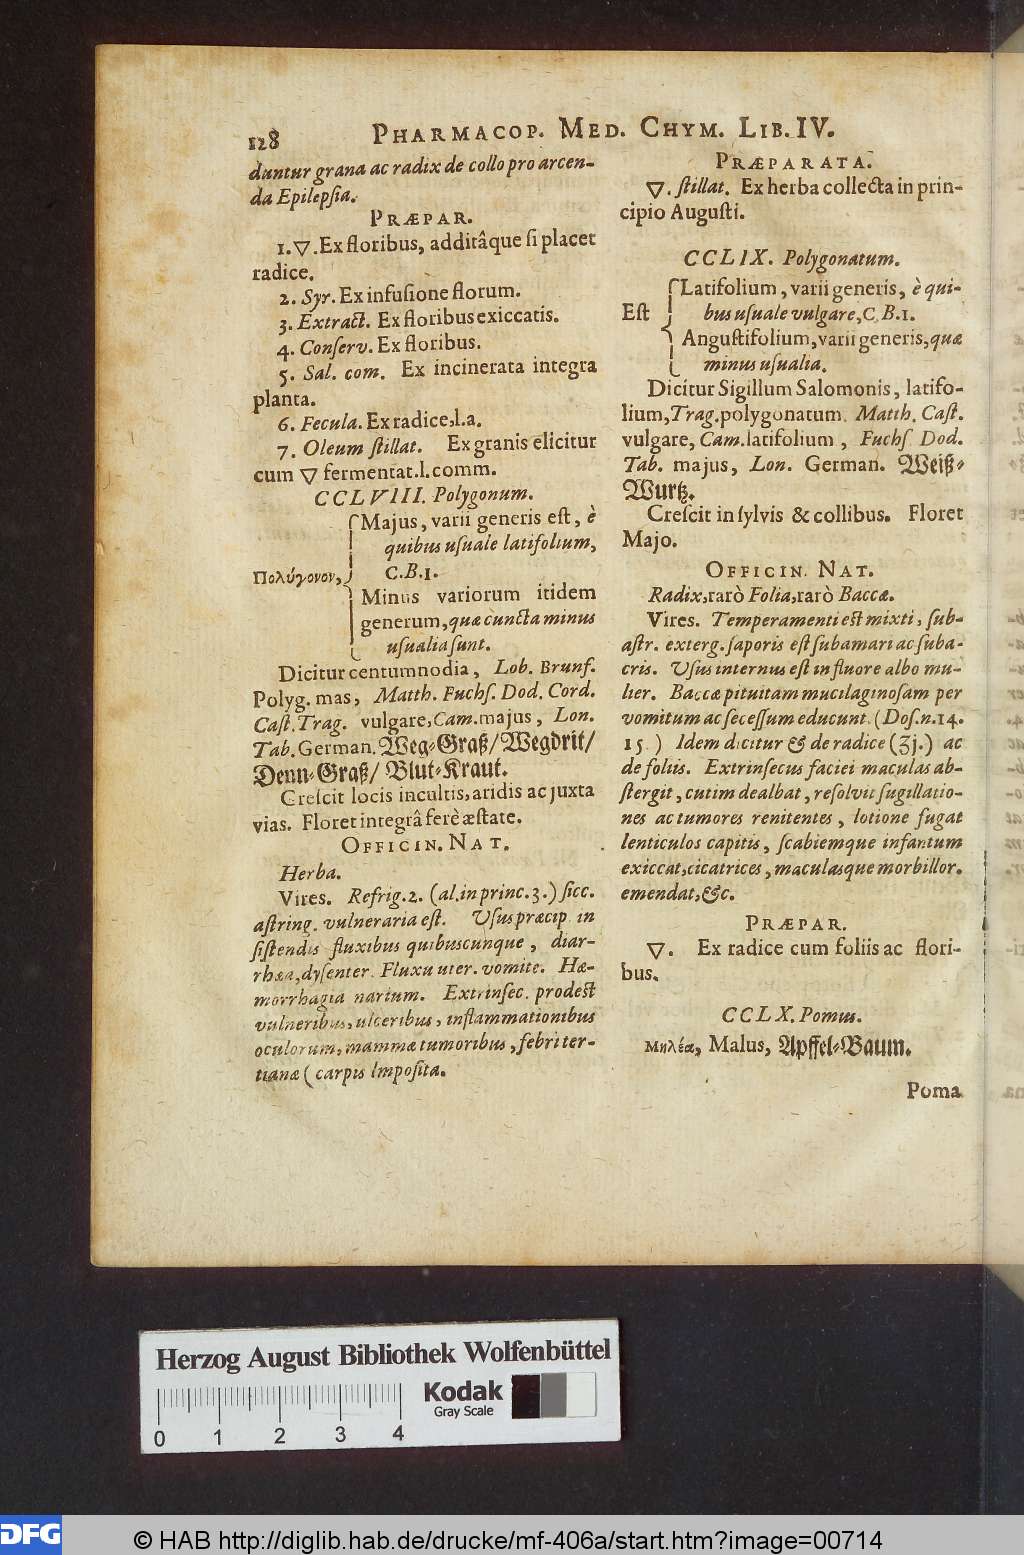 128 PHARMACOP. MED. CHYM. LIB. IV.
duntur grana ac radix de collo pro arcen-
da Epilepſia.
PRÆPAR.
1. 🜄. Ex floribus, additâque ſi placet
radice.
2. Syr. Ex infuſione florum.
3. Extract. Ex floribus exiccatis.
4. Conſerv. Ex floribus.
5. Sal. com. Ex incinerata integra
planta.
6. Fecula. Ex radice, l.a.
7. Oleum ſtillat. Ex granis elicitur
cum 🜄 fermentat. l. comm.
CCLVIII. Polygonum.
Majus, varii generis eſt, è
quibus uſuale latifolium,
Πολύγονον, C.B.1.
Minus variorum itidem
generum, quæ cuncta minus
uſualia ſunt.
Dicitur centumnodia, Lob. Brunf.
Polyg. mas, Matth. Fuchſ. Dod. Cord.
Caſt. Trag. vulgare, Cam. majus, Lon.
Tab. German. Weg-Graß/ Wegdrit/
Denn-Graß/ Blut-Kraut.
Creſcit locis incultis, aridis ac juxta
vias. Floret integrâ ferè æſtate.
OFFICIN. NAT.
Herba.
Vires. Refrig. 2. (al. in princ. 3.) ſicc.
aſtring. vulneraria eſt. Uſus præcip. in
ſiſtendis fluxibus quibuscunque, diar-
rhæa, dyſenter. Fluxu uter. vomite. Hæ-
morrhagia narium. Extrinſec. prodeſt
vulneribus, ulceribus, inflammationibus
oculorum, mammæ tumoribus, febri ter-
tianæ (carpis impoſita.
PRÆPARATA.
🜄. ſtillat. Ex herba collecta in prin-
cipio Auguſti.
CCLIX. Polygonatum.
Latifolium, varii generis, è qui-
Eſt bus uſuale vulgare, C.B.1.
Anguſtifolium, varii generis, quæ
minus uſualia.
Dicitur Sigillum Salomonis, latifo-
lium, Trag. polygonatum. Matth. Caſt.
vulgare, Cam. latifolium, Fuchſ. Dod.
Tab. majus, Lon. German. Weiß-
Wurtz.
Creſcit in ſylvis & collibus. Floret
Majo.
OFFICIN. NAT.
Radix, rarò Folia, rarò Baccæ.
Vires. Temperamenti eſt mixti, ſub-
aſtr. exterg. ſaporis eſt ſubamari ac ſuba-
cris. Uſus internus eſt in fluore albo mu-
lier. Baccæ pituitam mucilaginoſam per
vomitum ac ſeceſſum educunt. (Doſ. n. 14.
15.) Idem dicitur & de radice (ʒj.) ac
de foliis. Extrinſecus faciei maculas ab-
ſtergit, cutim dealbat, reſolvit ſugillatio-
nes ac tumores renitentes, lotione fugat
lenticulos capitis, ſcabiemque infantum
exiccat, cicatrices, maculasque morbillor.
emendat, &c.
PRÆPAR.
🜄. Ex radice cum foliis ac flori-
bus.
CCLX. Pomus.
Μηλέα, Malus, Apffel-Baum.
Poma
Herzog August Bibliothek Wolfenbüttel
Kodak
Gray Scale
0 1 2 3 4
DFG
© HAB http://diglib.hab.de/drucke/mf-406a/start.htm?image=00714